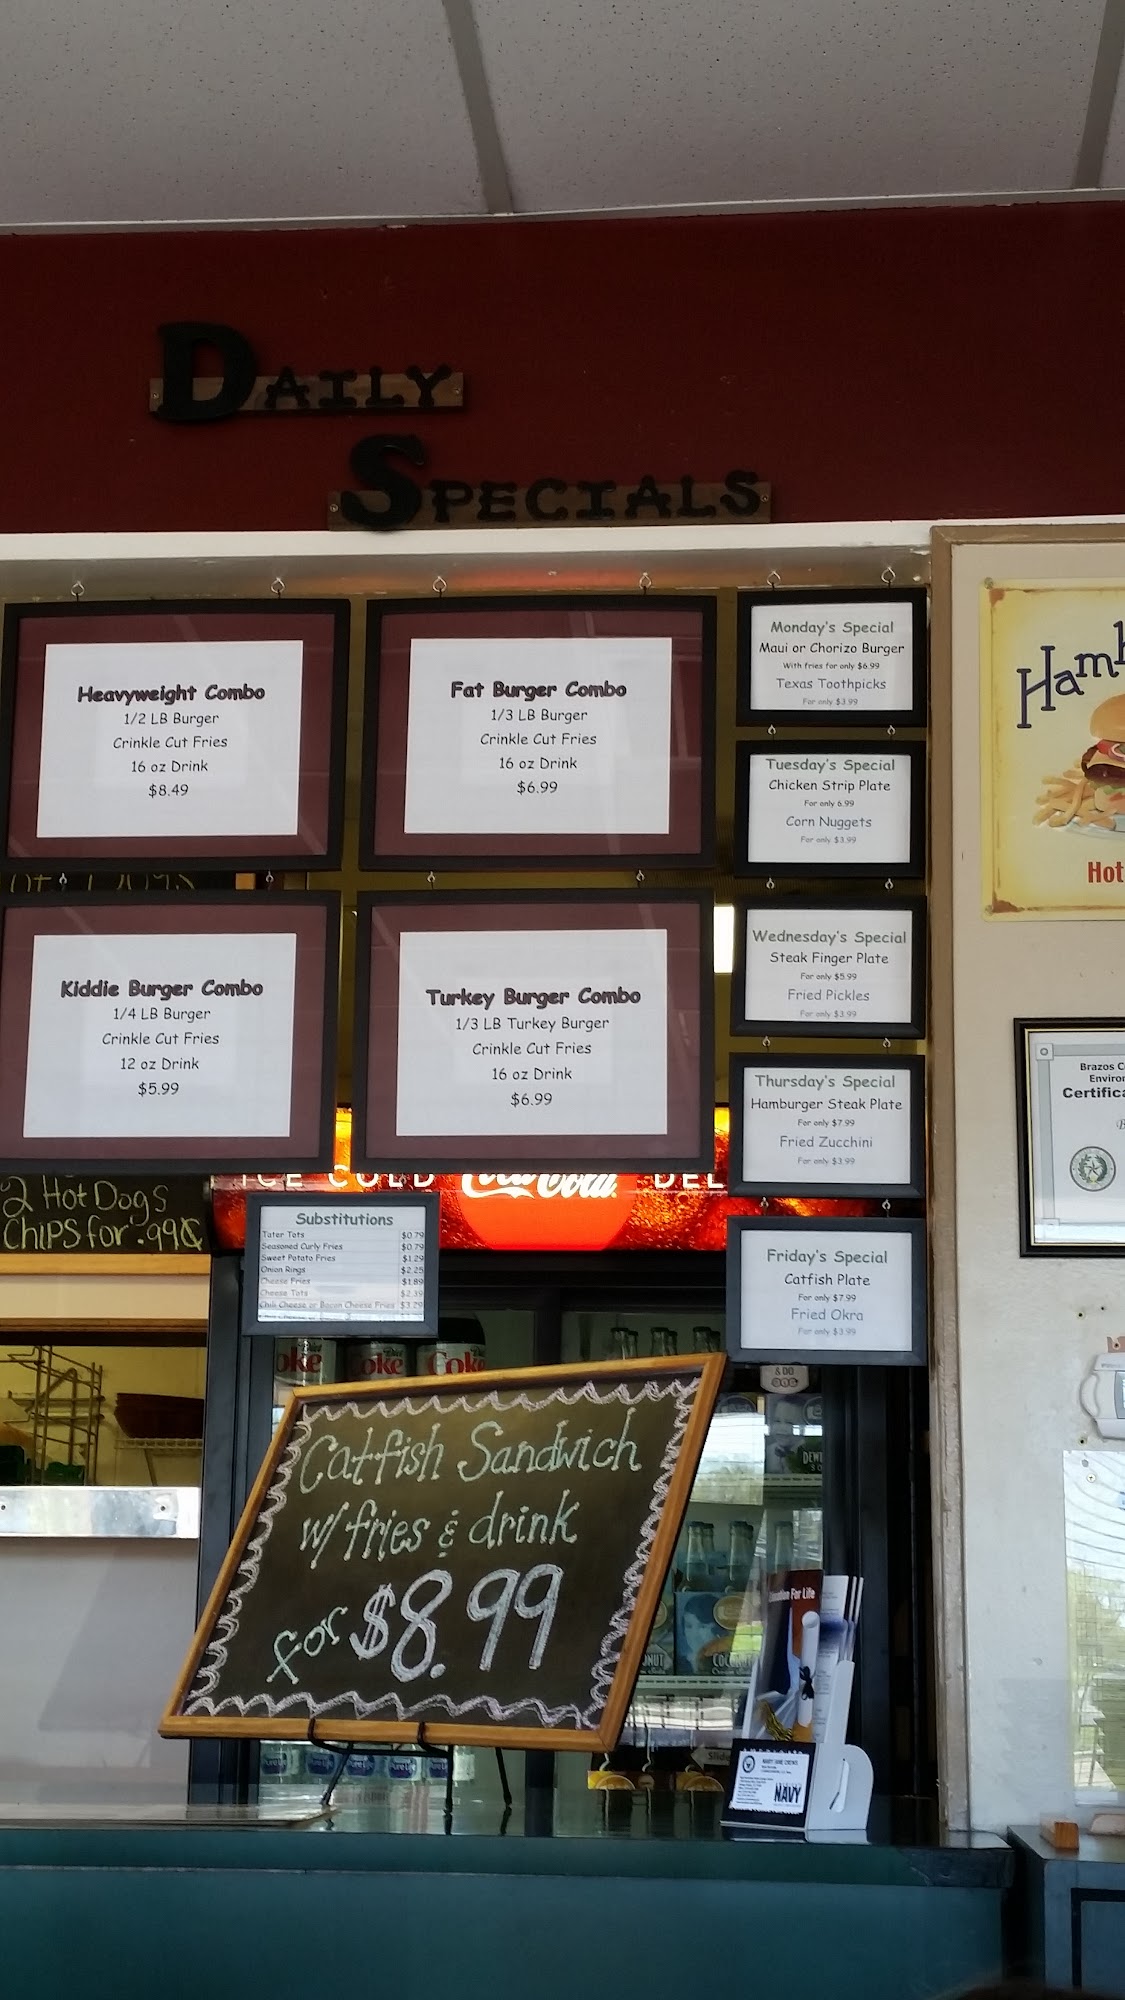 Daily
Specials
Heavyweight Combo
1/2 LB Burger
Crinkle Cut Fries
16 oz Drink
$8.49
Fat Burger Combo
1/3 LB Burger
Crinkle Cut Fries
16 oz Drink
$6.99
Kiddie Burger Combo
1/4 LB Burger
Crinkle Cut Fries
12 oz Drink
$5.99
Turkey Burger Combo
1/3 LB Turkey Burger
Crinkle Cut Fries
16 oz Drink
$6.99
Monday's Special
Maui or Chorizo Burger
With fries for only $6.99
Texas Toothpicks
For only $3.99
Tuesday's Special
Chicken Strip Plate
For only 6.99
Corn Nuggets
For only $3.99
Wednesday's Special
Steak Finger Plate
For only $5.99
Fried Pickles
For only $3.99
Thursday's Special
Hamburger Steak Plate
For only $7.99
Fried Zucchini
For only $3.99
Friday's Special
Catfish Plate
For only $7.99
Fried Okra
For only $3.99
ICE COLD Coca-Cola DEL
2 Hot Dogs
Chips for .99¢
Substitutions
Tater Tots $0.79
Seasoned Curly Fries $0.79
Sweet Potato Fries $1.29
Onion Rings $2.25
Cheese Fries $1.89
Cheese Tots $2.39
Chili Cheese or Bacon Cheese Fries $3.29
Catfish Sandwich
w/ fries & drink
for $8.99
Hamb
Hot
Brazos Co
Environ
Certifica
oke
Diet
Coke
Diet
Coke
For Life
NAVY
Pure Life